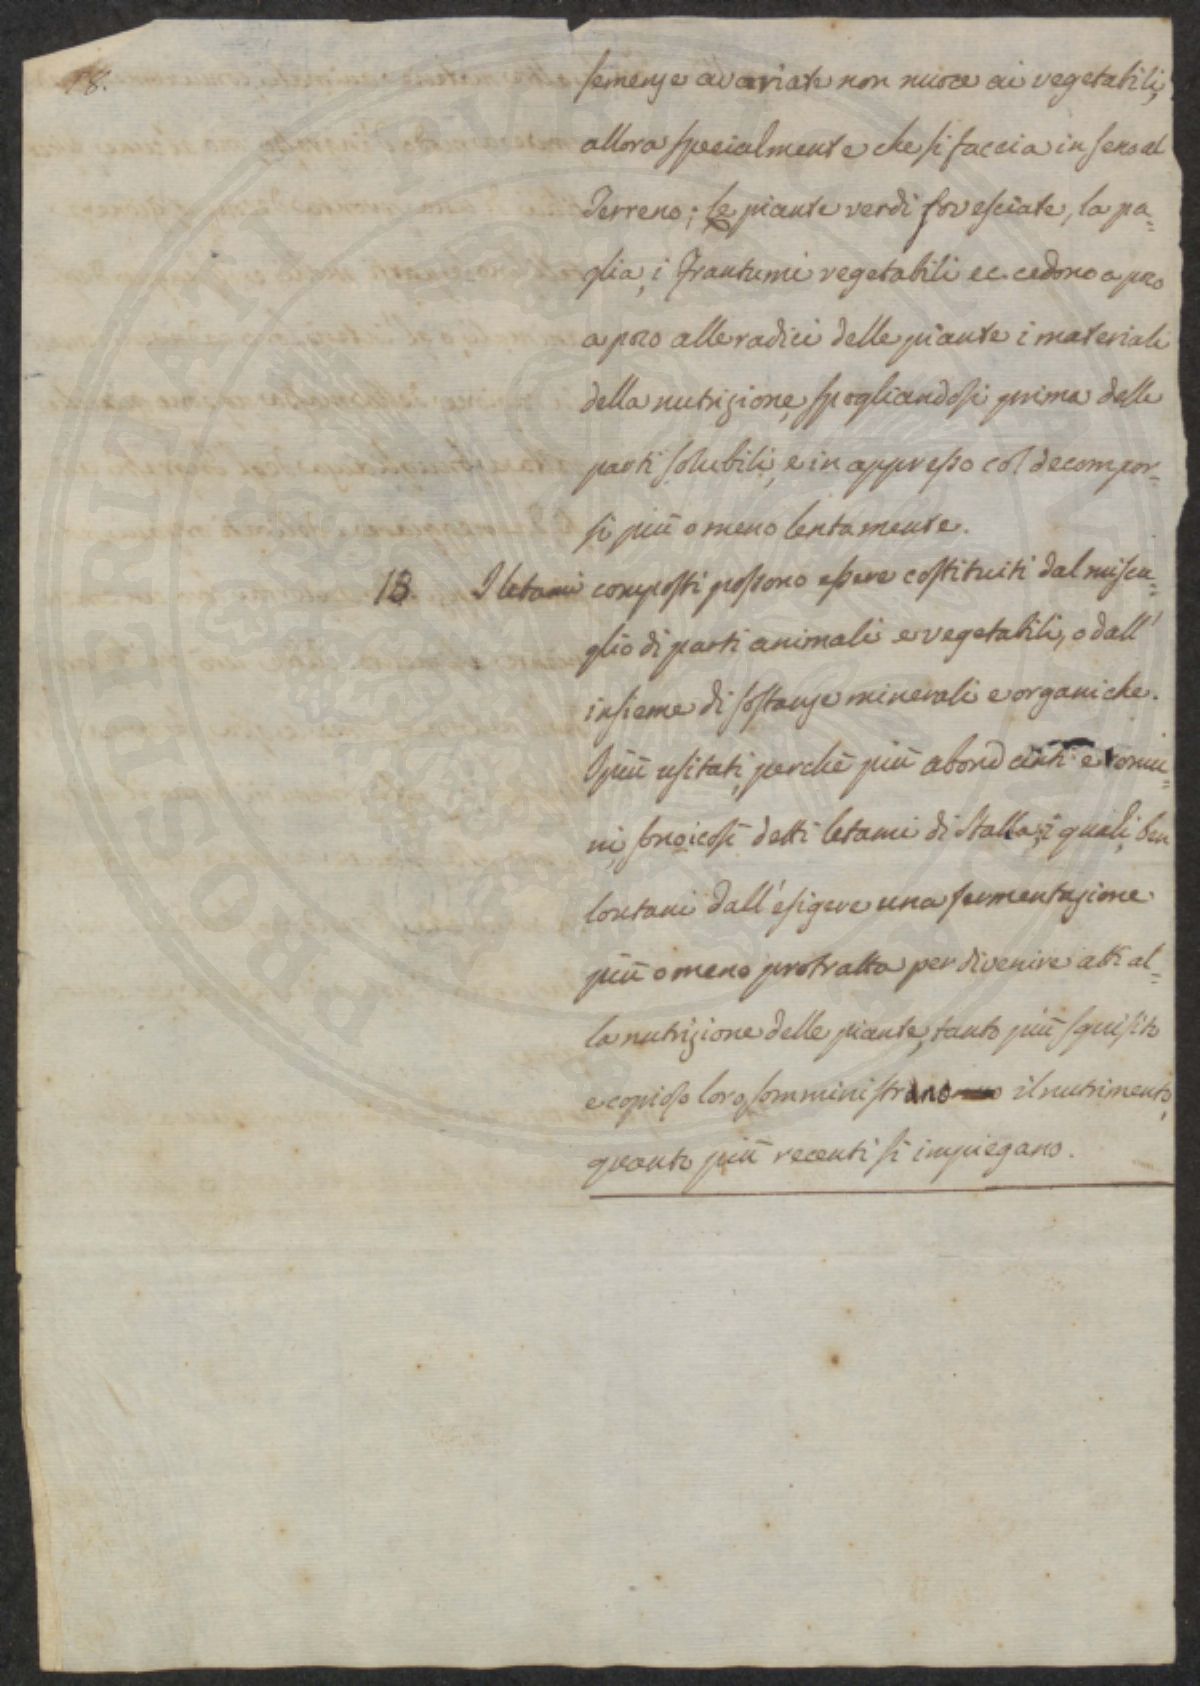 18.
semenze avariate non nuoce ai vegetabili,
allora specialmente che si faccia in seno al
terreno; le piante verdi sovesciate, la pa=
glia, i frantumi vegetabili ec. cedono a poco
a poco alle radici delle piante i materiali
della nutrizione, spogliandosi prima delle
parti solubili, e in appresso col decompor=
si più o meno lentamente.
13 I letami composti possono essere costituiti dal miscu=
glio di parti animali e vegetabili, o dall'
insieme di sostanze minerali e organiche.
I più usitati, perchè più abondanti e comu=
ni, sono i così detti letami di stalla, i quali, ben
lontani dall'esigere una fermentazione
più o meno protratta per divenire atti al=
la nutrizione delle piante, tanto più squisito
e copioso loro somministrano il nutrimento,
quanto più recenti si impiegano.
PROSPERITATI PUBLICAE